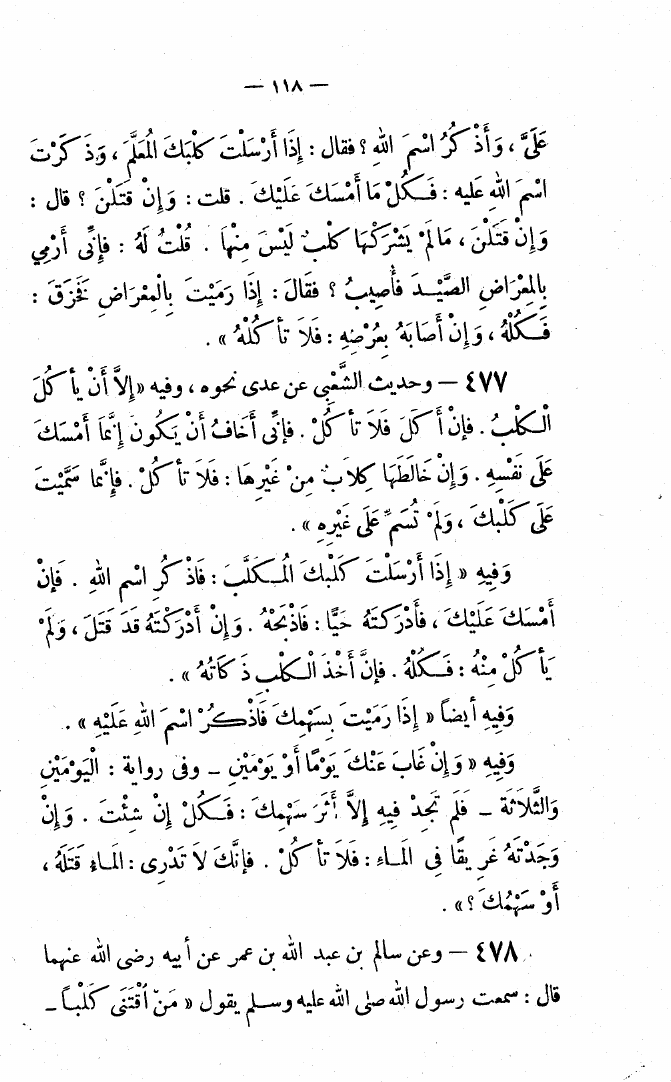 — ١١٨ —
عَلَىَّ ، وَأَذْكُرُ اسْمَ اللهِ ؟ فقال : إِذَا أَرْسَلْتَ كلْبَكَ الْمُعَلَّمَ ، وَذَكَرْتَ
اسْمَ اللهِ عليه : فَكُلْ مَا أَمْسَكَ عَلَيْكَ . قلت : وَإِنْ قَتَلْنَ ؟ قال :
وَإِنْ قَتَلْنَ ، مَالَمْ يَشْرَكْهَا كلْبٌ لَيْسَ مِنْهَا . قُلْتُ لَهُ : فَإِنِّى أَرْمِي
بِالمِعْرَاضِ الصَّيْدَ فأُصِيبُ ؟ فقَالَ : إِذَا رَمَيْتَ بِالْمِعْرَاضِ فَخَزَقَ :
فَكُلْهُ ، وَإِنْ أَصَابَهُ بِعُرْضِهِ : فَلاَ تأْكُلْهُ » .
٤٧٧ — وحديث الشَّعْبِى عن عدى نحوه ، وفيه « إِلاَّ أَنْ يأْكُلَ
الْكلْبُ . فإنْ أَكَلَ فَلاَ تأْكُلْ . فإنِّى أَخَافُ أَنْ يَكُونَ إِنَّمَا أَمْسَكَ
عَلَى نَفْسِهِ . وَإِنْ خَالَطَهَا كِلاَبٌ مِنْ غَيْرِهَا : فَلاَ تأْكُلْ . فإِنَّمَا سَمَّيْتَ
عَلَى كَلْبِكَ ، وَلَمْ تُسَمِّ عَلَى غَيْرِهِ » .
وَفِيهِ « إِذَا أَرْسَلْتَ كَلْبَكَ الْمُكَلَّبَ : فَاذْكُرِ اسْمَ اللهِ . فَإِنْ
أَمْسَكَ عَلَيْكَ ، فَأَدْرَكْتَهُ حَيًّا : فَاذْبَحْهُ . وَإِنْ أَدْرَكْتَهُ قَدَ قَتَلَ ، وَلَمْ
يَأْكُلْ مِنْهُ : فَكُلْهُ . فإنَّ أَخْذَ الْكلْبِ ذَكَاتُهُ » .
وَفِيهِ أيضاً « إِذَا رَمَيْتَ بِسَهْمِكَ فَاذْكُرْ اسْمَ اللهِ عَلَيْهِ » .
وَفِيهِ « وَإِنْ غَابَ عَنْكَ يَوْمًا أَوْ يَوْمَيْنِ – وفى رواية : الْيَوْمَيْنِ
وَالثَّلاَثَةَ – فَلَمْ تَجِدْ فِيهِ إِلاَّ أَثَرَ سَهْمِكَ : فَكُلْ إِنْ شِئْتَ . وَإِنْ
وَجَدْتَهُ غَرِيقًا فِى الْمَاءِ : فَلاَ تأْكُلْ . فإِنَّكَ لاَ تَدْرِى : الْمَاءُ قَتَلَهُ ،
أَوْ سَهْمُكَ ؟ » .
٤٧٨ — وعن سالم بن عبد الله بن عمر عن أبيه رضى الله عنهما
قال : سمعت رسول الله صلى الله عليه وسلم يقول « مَنْ اقْتَنَى كَلْباً –